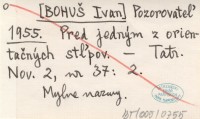 [BOHUŠ Ivan] Pozorovateľ
1955. Pred jedným z orien-
tačných stĺpov. – Tatr.
Nov. 2, nr 37: 2.
Mylne nazwy.